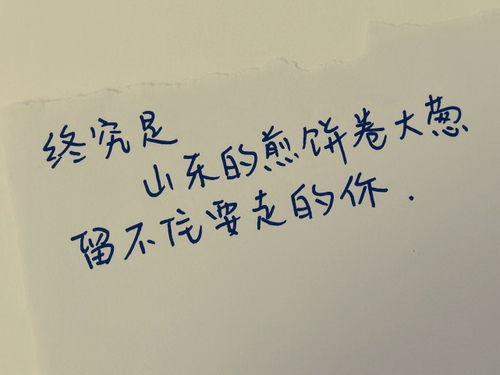 终究是
山东的煎饼卷大葱
留不住要走的你.